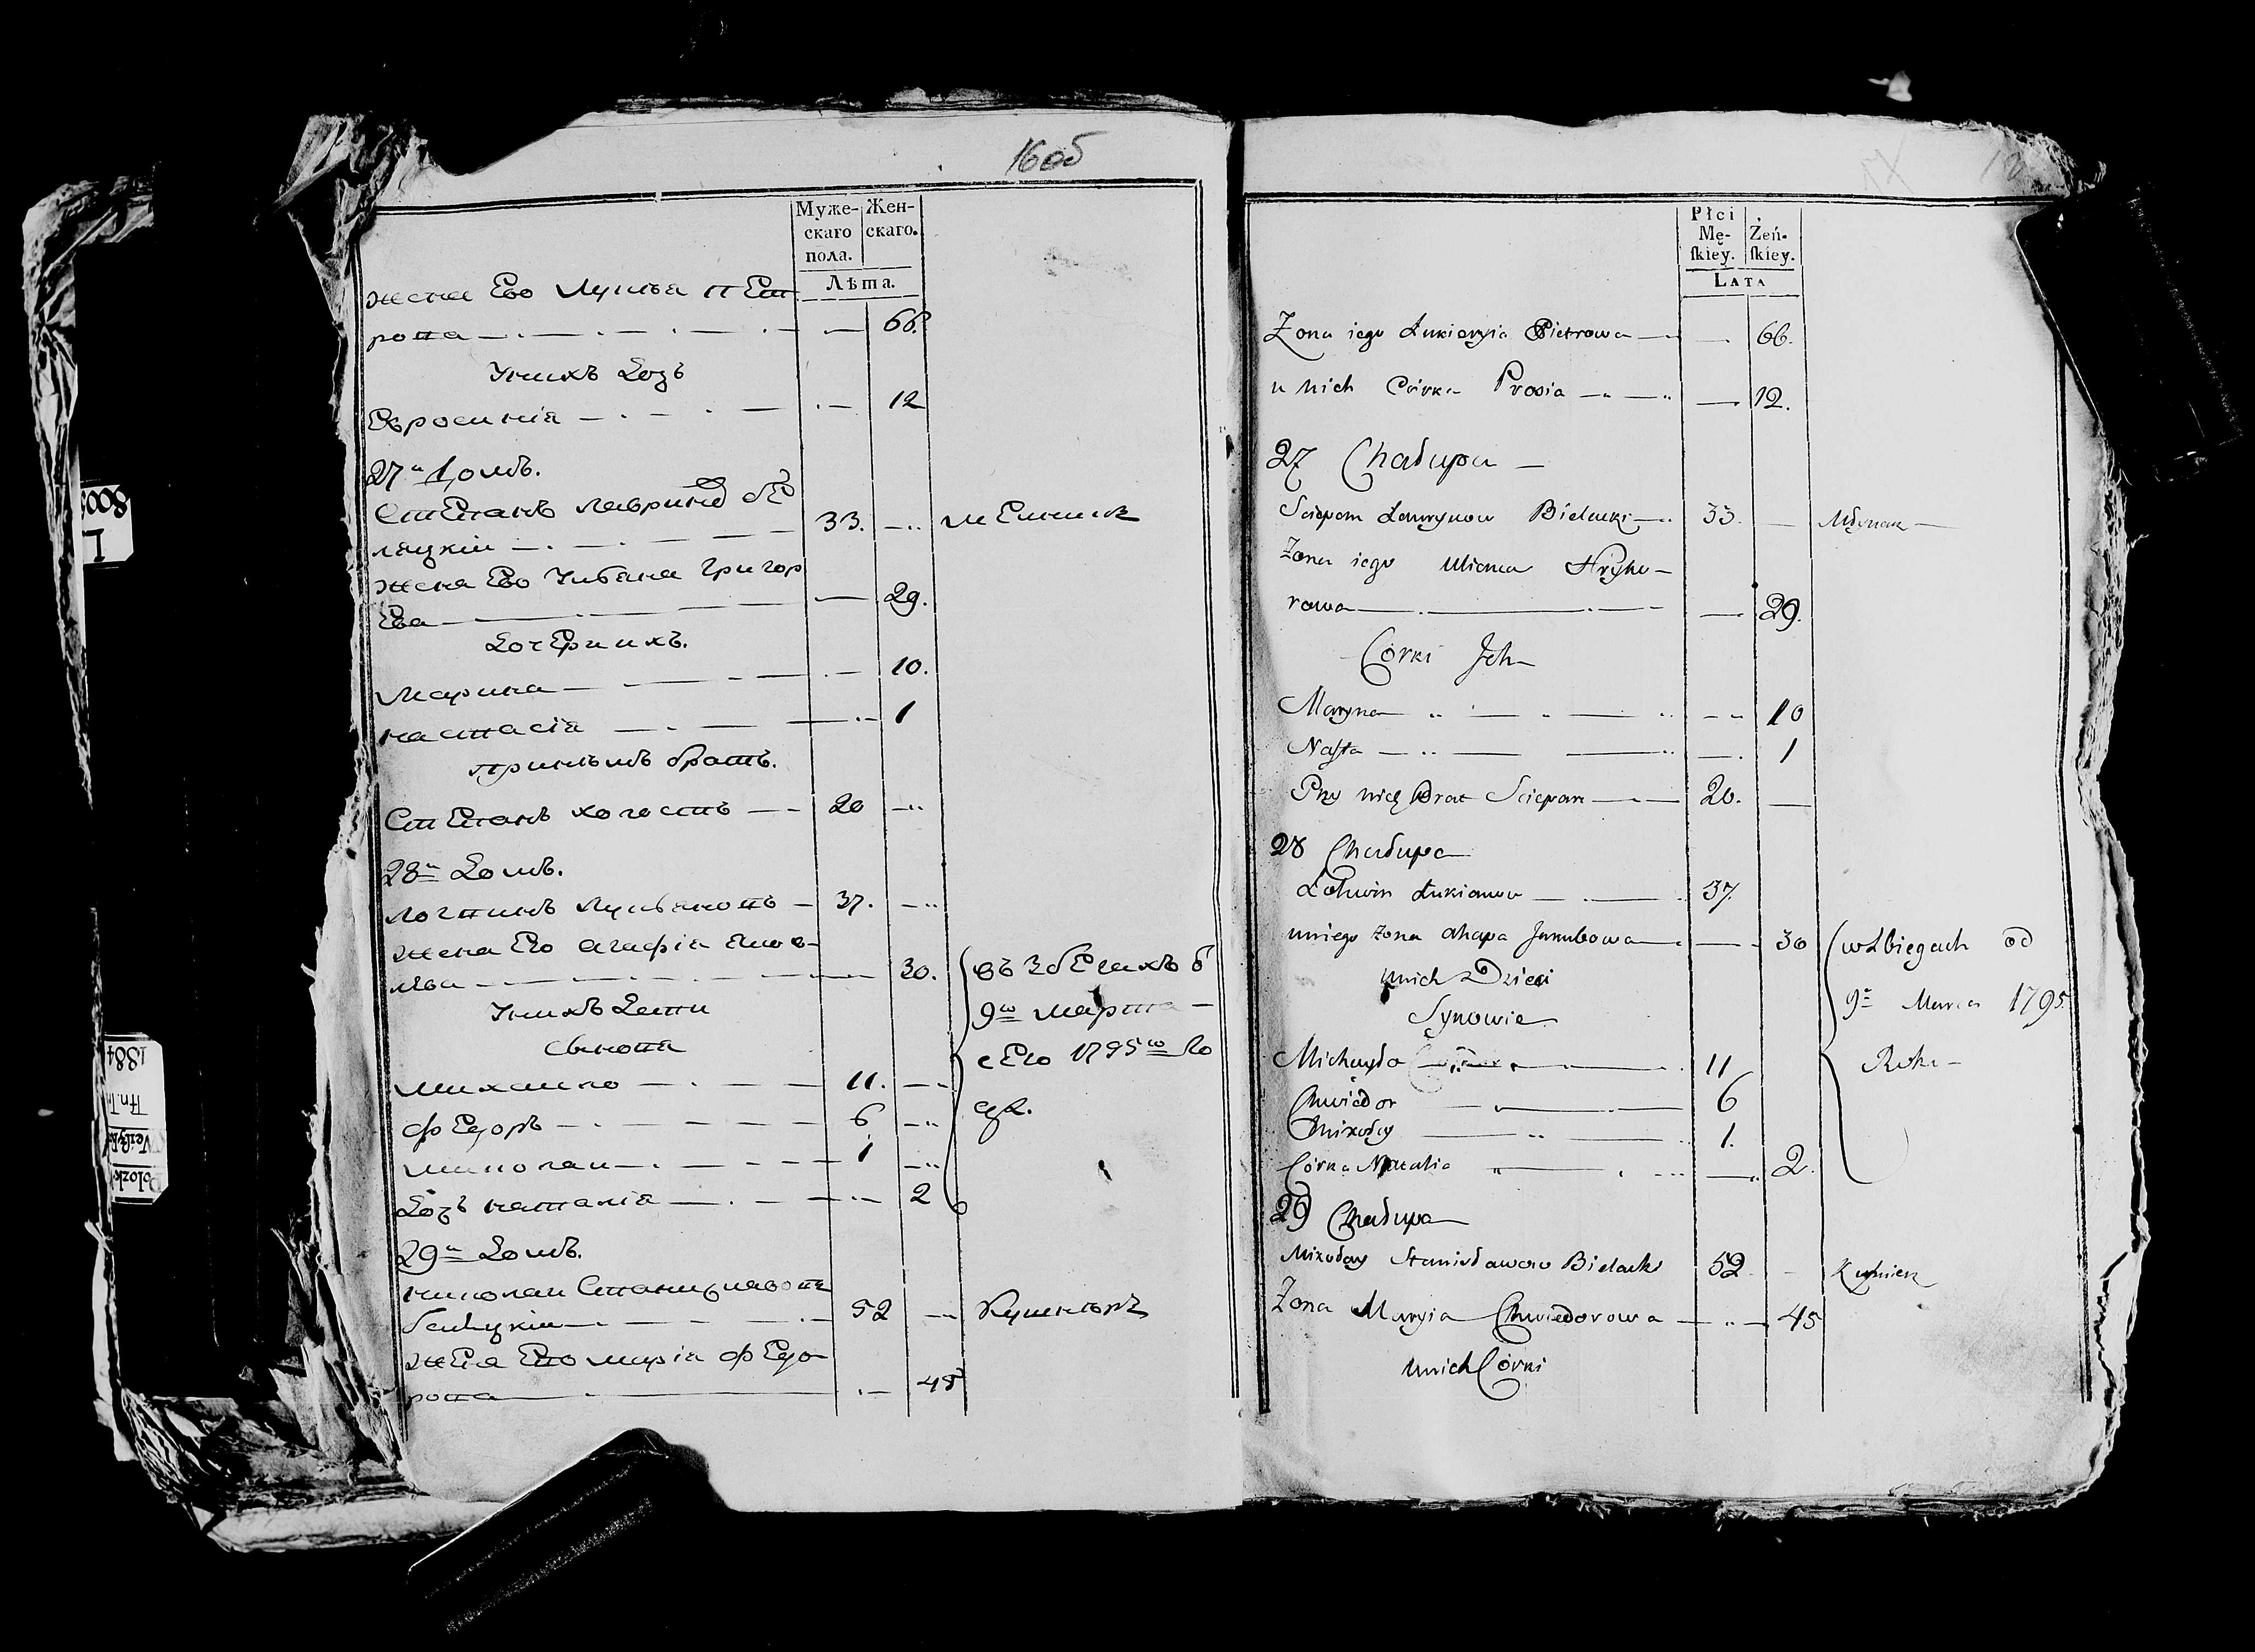 16 об
Муже- Жен-
скаго скаго.
пола.
Лѣта.
жена Ево Лукия пЕт
рова — 66.
Унихъ Доч
Евросинія — 12
27й Домъ.
СтЕпанъ Лавринов бЕ
ляцкій — 33. — мЕлник
жена Ево Улбяна Григор
Ева — 29.
ДочЕри ихъ.
Марина — 10.
настасія — 1
принемъ братъ.
СтЕпанъ холостъ — 20 —
28й Домъ.
Логвинъ Лукьяновъ — 37. —
жена Его агафія Яков-
лЕва — 30. въ збЕгахъ с
Унихъ Дети 9го марта —
Сынова
сЕго 1795го го
михайло — 11. —
да.
фЕдоръ — 6 —
миколай — 1 —
Доч наталія — 2
29й Домъ.
николай Станиславовъ
белецкій — 52 — Кушнѣръ
жЕна Ево марія фЕдо
рова — 45
Płci Żeń-
Mę- ſkiey.
ſkiey.
LATA
Zona iego Łukieryia Pietrowa — 66.
u nich Córka Prosia — 12.
27 Chałupa —
Sciepan Ławrynow Bielacki — 33. — Młynarz —
Zona iego Uliana Hryho-
rowa — 29.
Córki Jch —
Maryna — 10
Naſta — 1
Przy nich Brat Sciepan — 20. —
28 Chałupa
Łohwin Łukianow — 37.
uniego zona Ahapa Jakubowa — 30 wzbiegach od
unich Dzieci
9o Marca 1795
Synowie
Michayło — 11 Roku —
Chwiedor — 6
Mikołay — 1.
Córka Natalia — 2.
29 Chałupa
Mikołay Stanisławow Bielacki 52 — Kuſnierz
Zona Maryia Chwiedorowa — 45
unich Córki